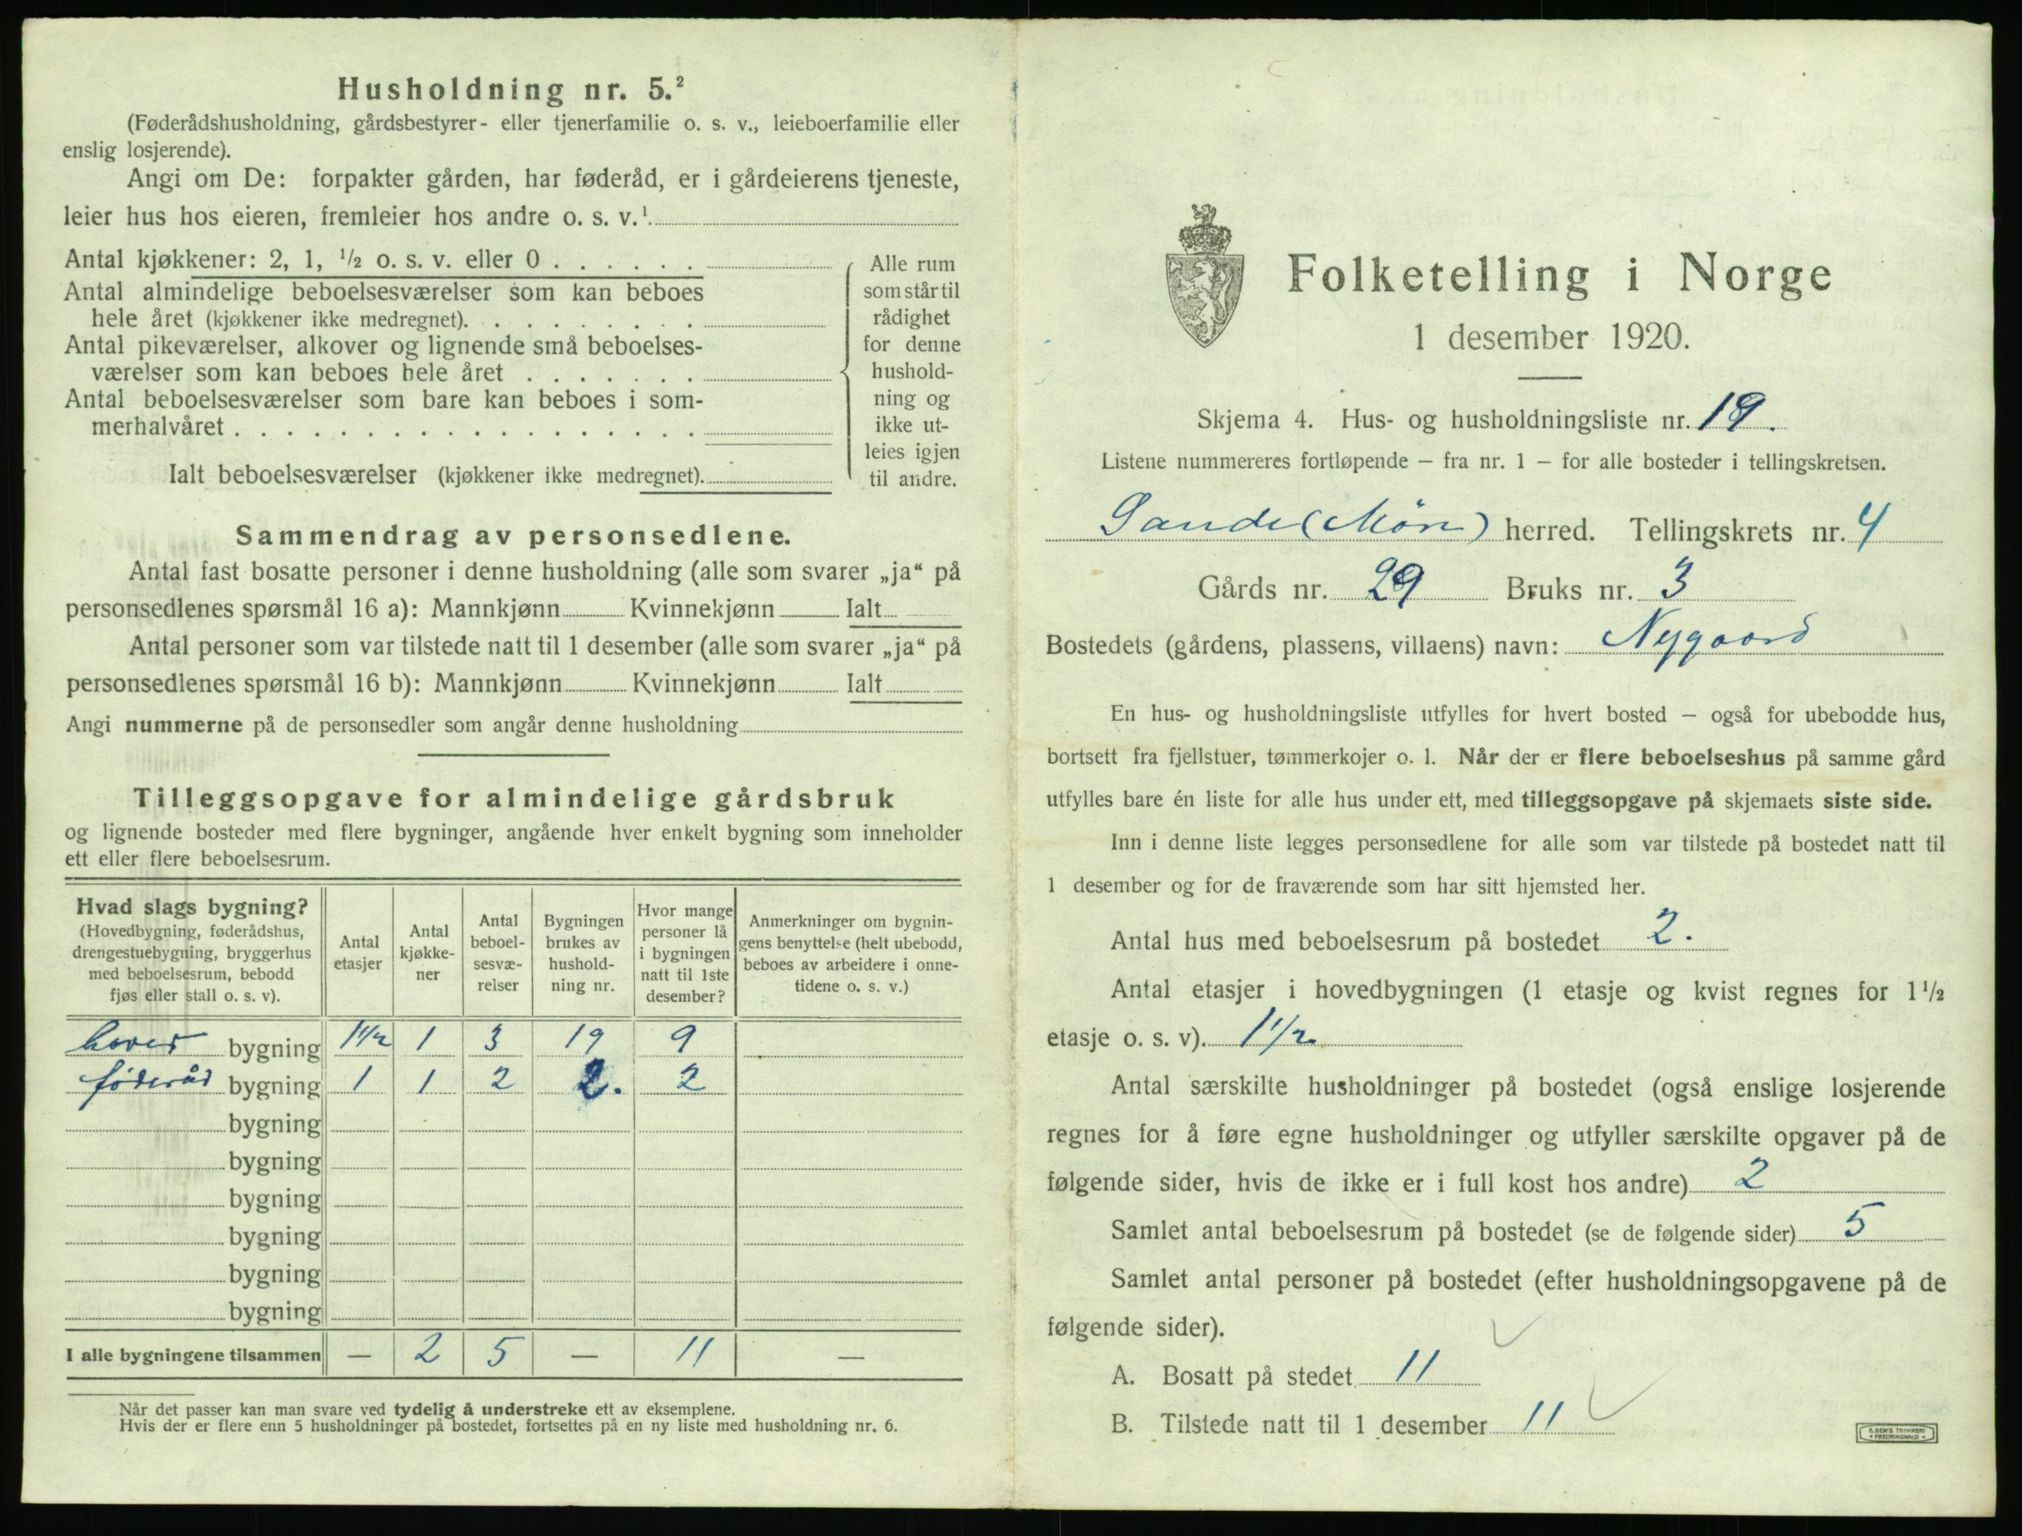 Husholdning nr. 5.²
(Føderådshusholdning, gårdsbestyrer- eller tjenerfamilie o. s. v., leieboerfamilie eller
enslig losjerende).
Angi om De: forpakter gården, har føderåd, er i gårdeierens tjeneste,
leier hus hos eieren, fremleier hos andre o. s. v.¹
Antal kjøkkener: 2, 1, ½ o. s. v. eller 0 . . . . . .
Antal almindelige beboelsesværelser som kan beboes
hele året (kjøkkener ikke medregnet). . . . . . . . .
Antal pikeværelser, alkover og lignende små beboelses-
værelser som kan beboes hele året . . . . . . .
Antal beboelsesværelser som bare kan beboes i som-
merhalvåret . . . . . . . . . . . . . . . . . .
Ialt beboelsesværelser (kjøkkener ikke medregnet).
Alle rum
som står til
rådighet
for denne
hushold-
ning og
ikke ut-
leies igjen
til andre.
Sammendrag av personsedlene.
Antal fast bosatte personer i denne husholdning (alle som svarer „ja“ på
personsedlenes spørsmål 16 a): Mannkjønn Kvinnekjønn Ialt
Antal personer som var tilstede natt til 1 desember (alle som svarer „ja“ på
personsedlenes spørsmål 16 b): Mannkjønn Kvinnekjønn Ialt
Angi nummerne på de personsedler som angår denne husholdning
Tilleggsopgave for almindelige gårdsbruk
og lignende bosteder med flere bygninger, angående hver enkelt bygning som inneholder
ett eller flere beboelsesrum.
Hvad slags bygning?
(Hovedbygning, føderådshus,
drengestuebygning, bryggerhus
med beboelsesrum, bebodd
fjøs eller stall o. s. v).
Antal
etasjer
Antal
kjøkke-
ner
Antal
beboel-
sesvæ-
relser
Bygningen
brukes av
hushold-
ning nr.
Hvor mange
personer lå
i bygningen
natt til 1ste
desember?
Anmerkninger om bygnin-
gens benyttelse (helt ubebodd,
beboes av arbeidere i onne-
tidene o. s. v.)
hoved bygning 1½ 1 3 19 9
føderåd bygning 1 1 2 2. 2
bygning
bygning
bygning
bygning
bygning
bygning
I alle bygningene tilsammen — 2 5 — 11 —
Når det passer kan man svare ved tydelig å understreke ett av eksemplene.
Hvis der er flere enn 5 husholdninger på bostedet, fortsettes på en ny liste med husholdning nr. 6.
Folketelling i Norge
1 desember 1920.
Skjema 4. Hus- og husholdningsliste nr. 19.
Listene nummereres fortløpende — fra nr. 1 — for alle bosteder i tellingskretsen.
Sande (Møre) herred. Tellingskrets nr. 4
Gårds nr. 29 Bruks nr. 3
Bostedets (gårdens, plassens, villaens) navn: Nygaard
En hus- og husholdningsliste utfylles for hvert bosted — også for ubebodde hus,
bortsett fra fjellstuer, tømmerkojer o. l. Når der er flere beboelseshus på samme gård
utfylles bare én liste for alle hus under ett, med tilleggsopgave på skjemaets siste side.
Inn i denne liste legges personsedlene for alle som var tilstede på bostedet natt til
1 desember og for de fraværende som har sitt hjemsted her.
Antal hus med beboelsesrum på bostedet 2.
Antal etasjer i hovedbygningen (1 etasje og kvist regnes for 1½
etasje o. s. v). 1½
Antal særskilte husholdninger på bostedet (også enslige losjerende
regnes for å føre egne husholdninger og utfyller særskilte opgaver på de
følgende sider, hvis de ikke er i full kost hos andre) 2
Samlet antal beboelsesrum på bostedet (se de følgende sider) 5
Samlet antal personer på bostedet (efter husholdningsopgavene på de
følgende sider).
A. Bosatt på stedet 11
B. Tilstede natt til 1 desember 11